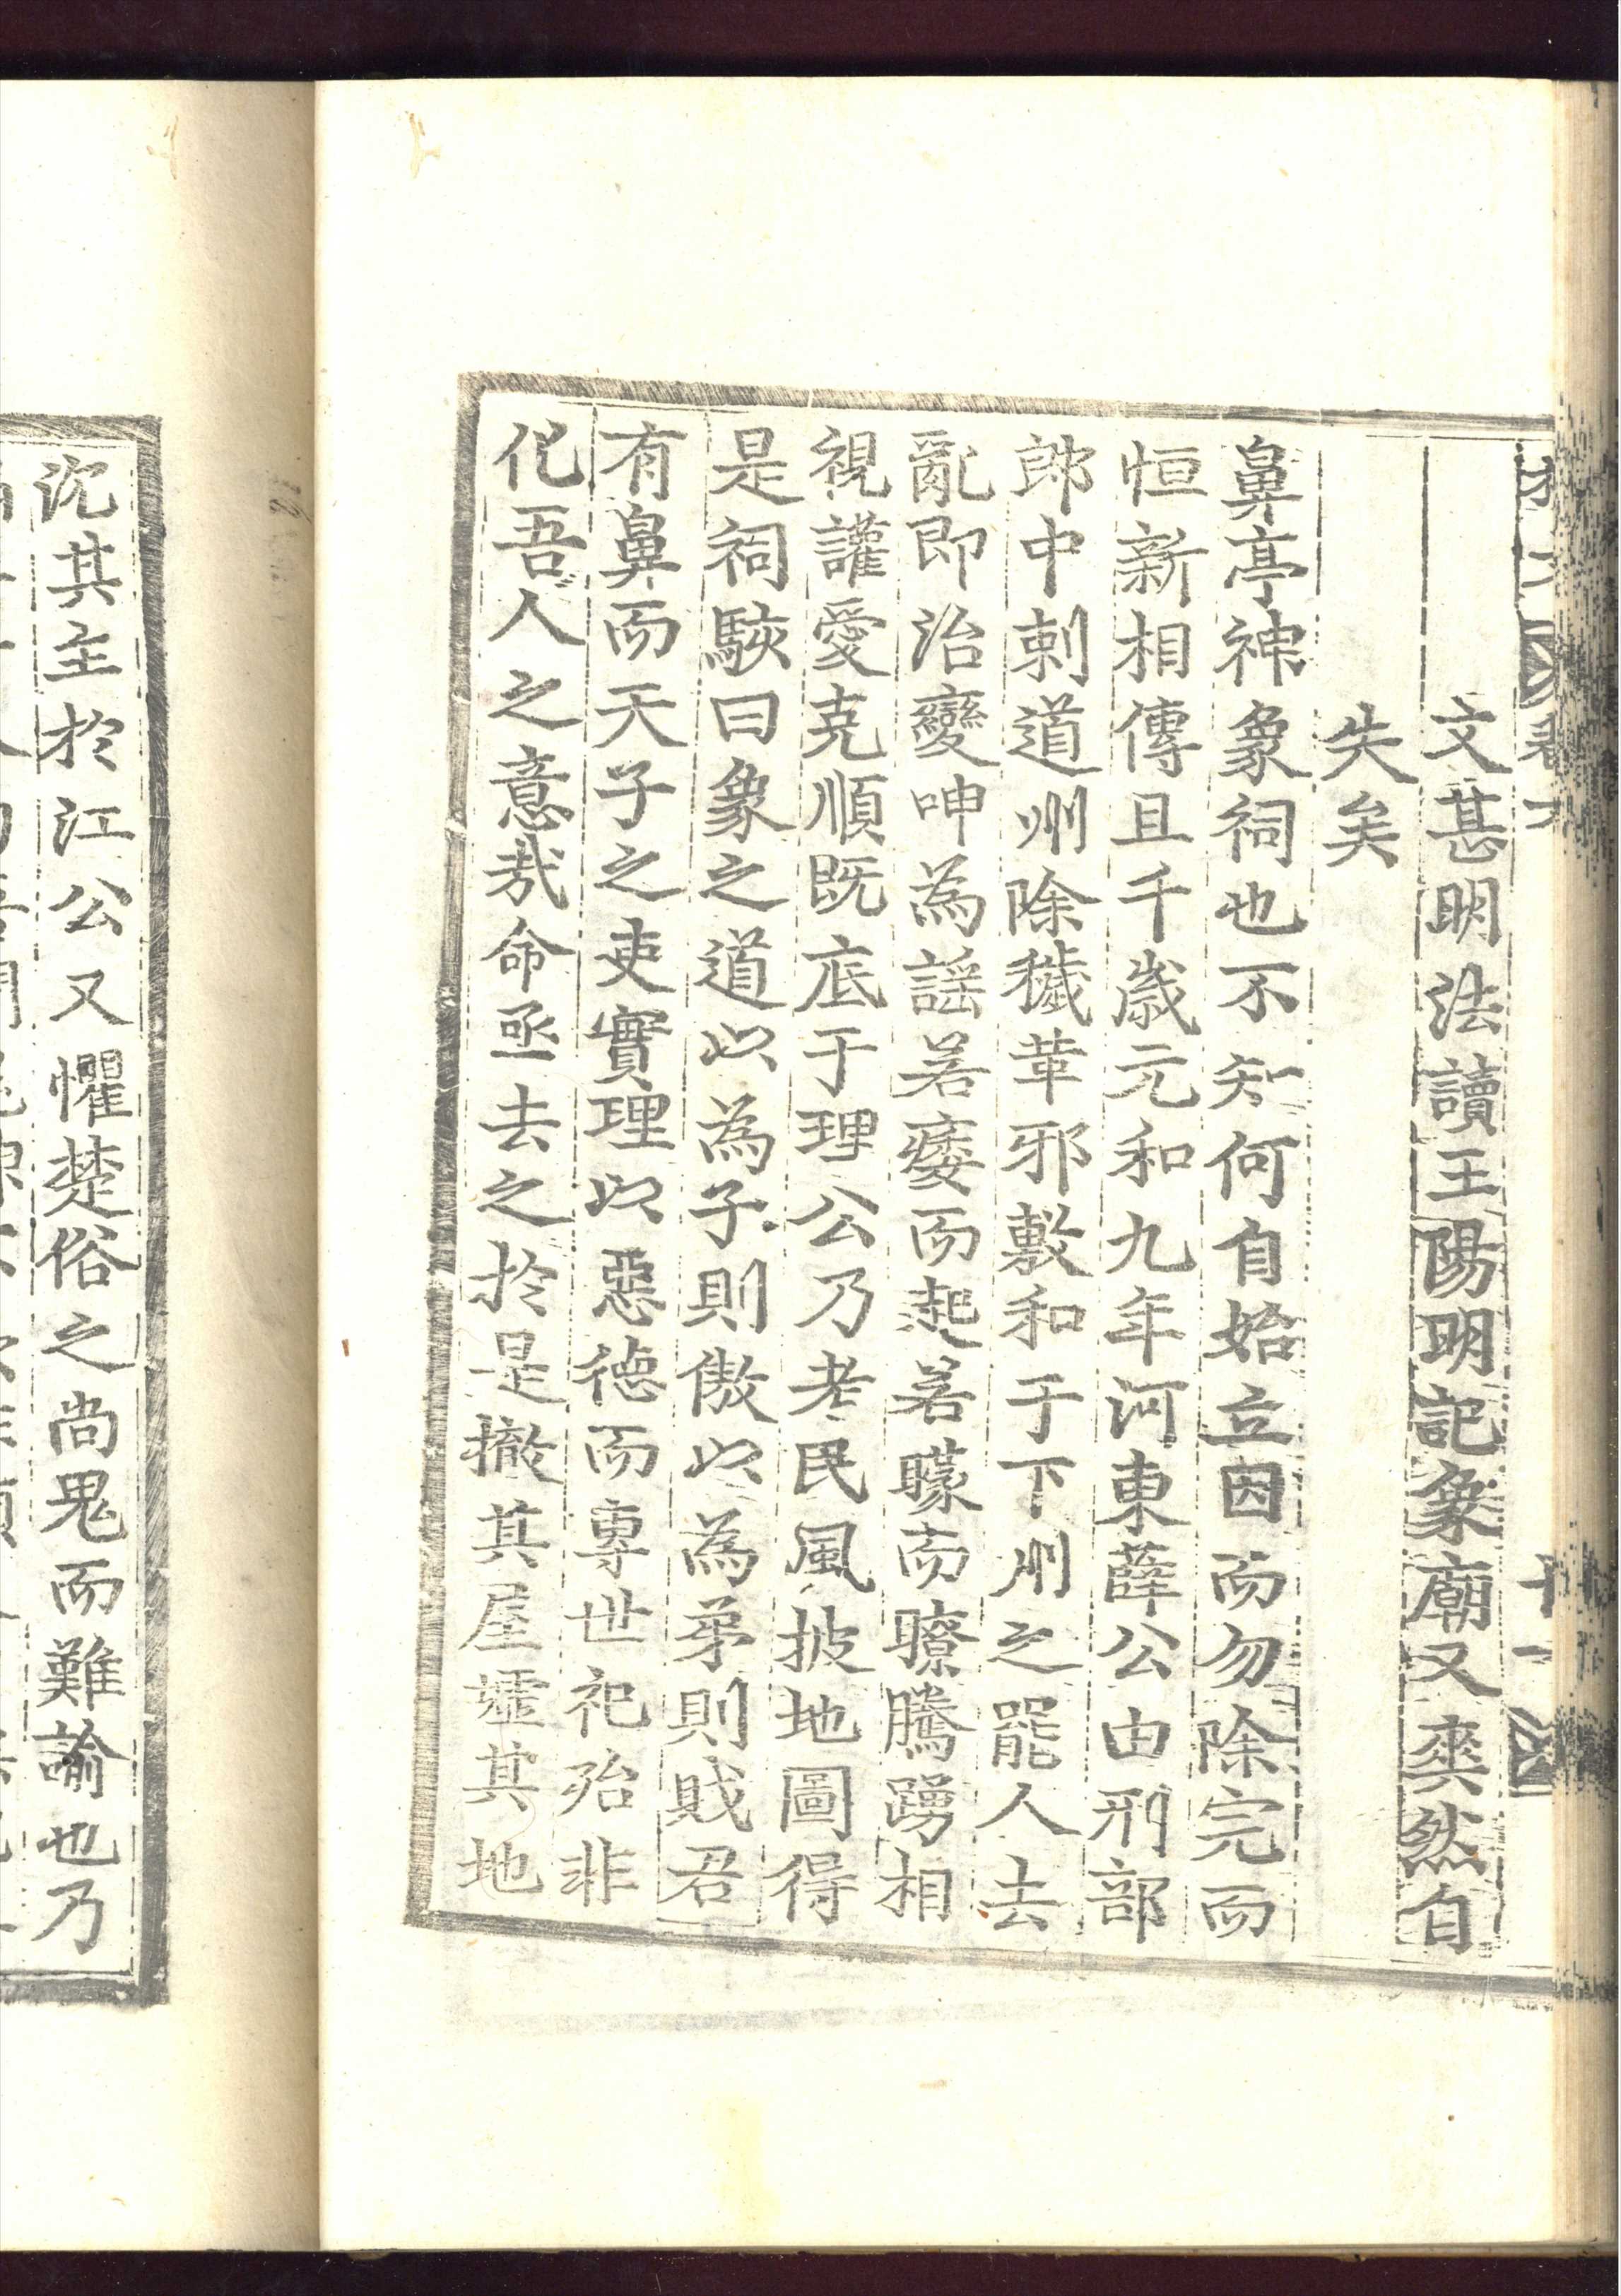 文甚明法讀王陽明記象廟又爽然自
失矣
鼻亭神象祠也不知何自始立因而勿除完而
恒新相傳且千歲元和九年河東薛公由刑部
郎中刺道州除穢革邪敷和于下州之罷人去
亂即治變呻為謠若痿而起若矇而瞭騰踴相
視讙愛克順既底于理公乃考民風披地圖得
是祠駭曰象之道以為子則傲以為弟則賊君
有鼻而天子之吏實理以惡德而專世祀殆非
化吾人之意哉命亟去之於是撤其屋墟其地
沉其主於江公又懼楚俗之尚鬼而難諭也乃